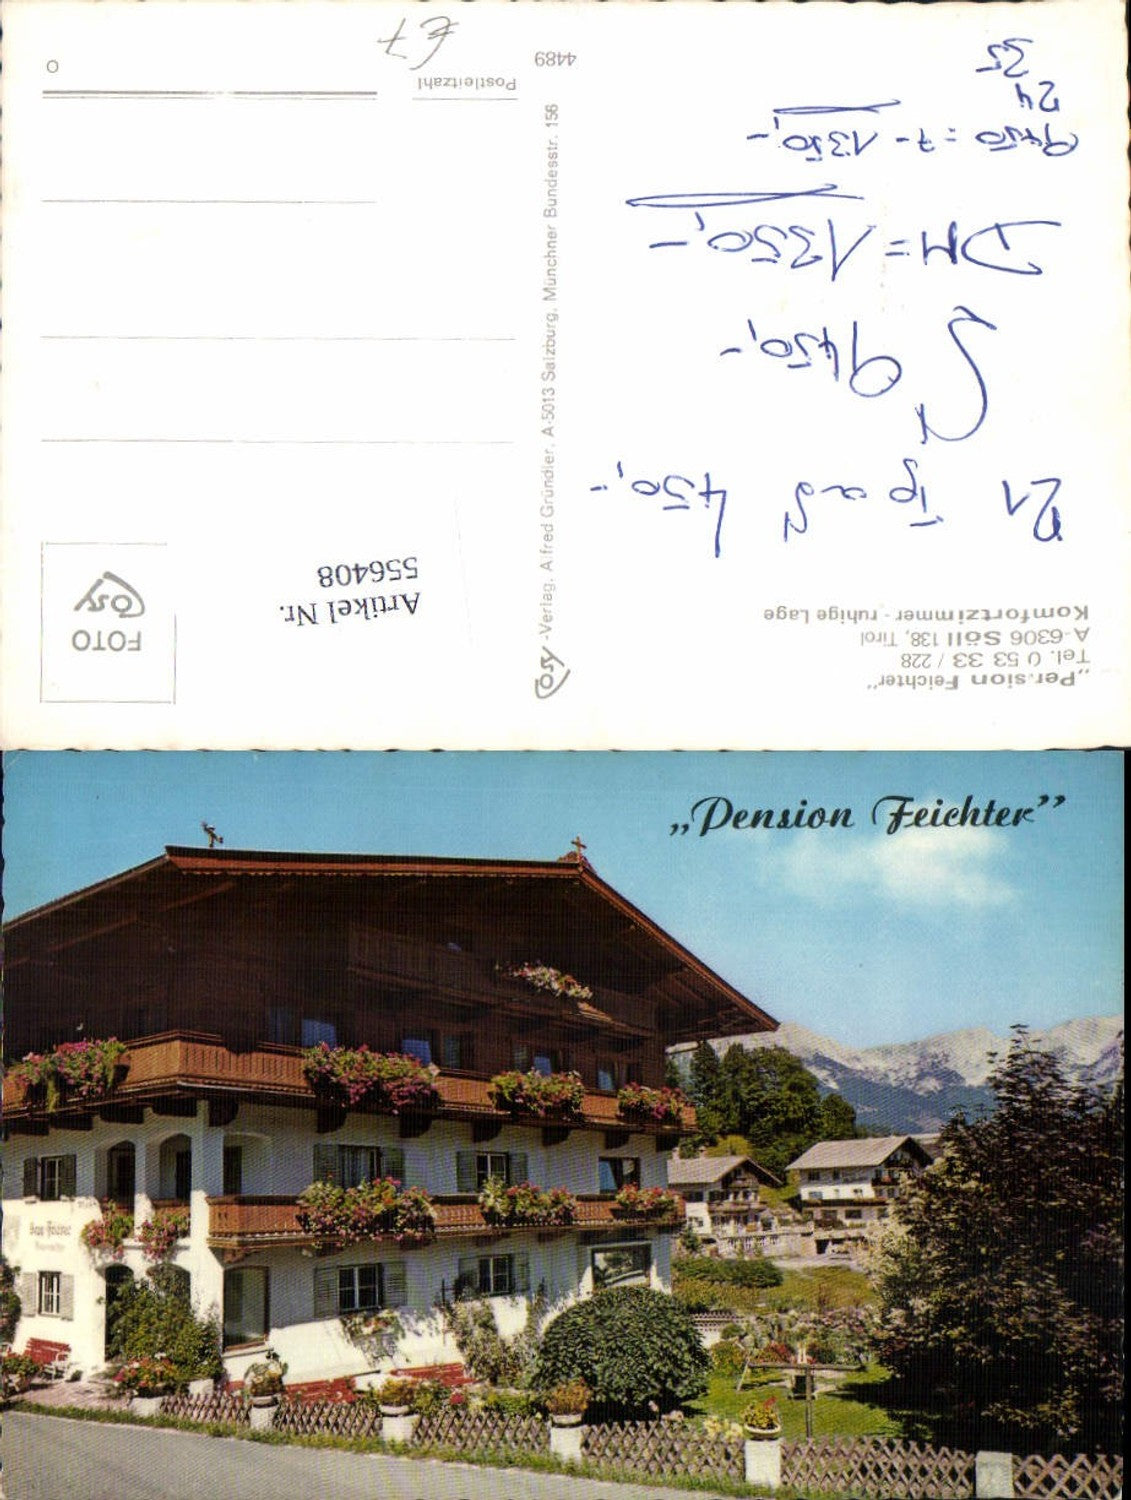 „Pension Feichter”
Tel. 0 53 33 / 228
A-6306 Söll 138, Tirol
Komfortzimmer - ruhige Lage
21 Tg a S 450,-
S 9450,-
DM = 1350,-
9450 = 7 - 1350,-
24
35
Cosy -Verlag, Alfred Gründler, A-5013 Salzburg, Münchner Bundesstr. 156
4489
FOTO
Cosy
Artikel Nr.
556408
Postleitzahl
€ 7
O
„Pension Feichter”